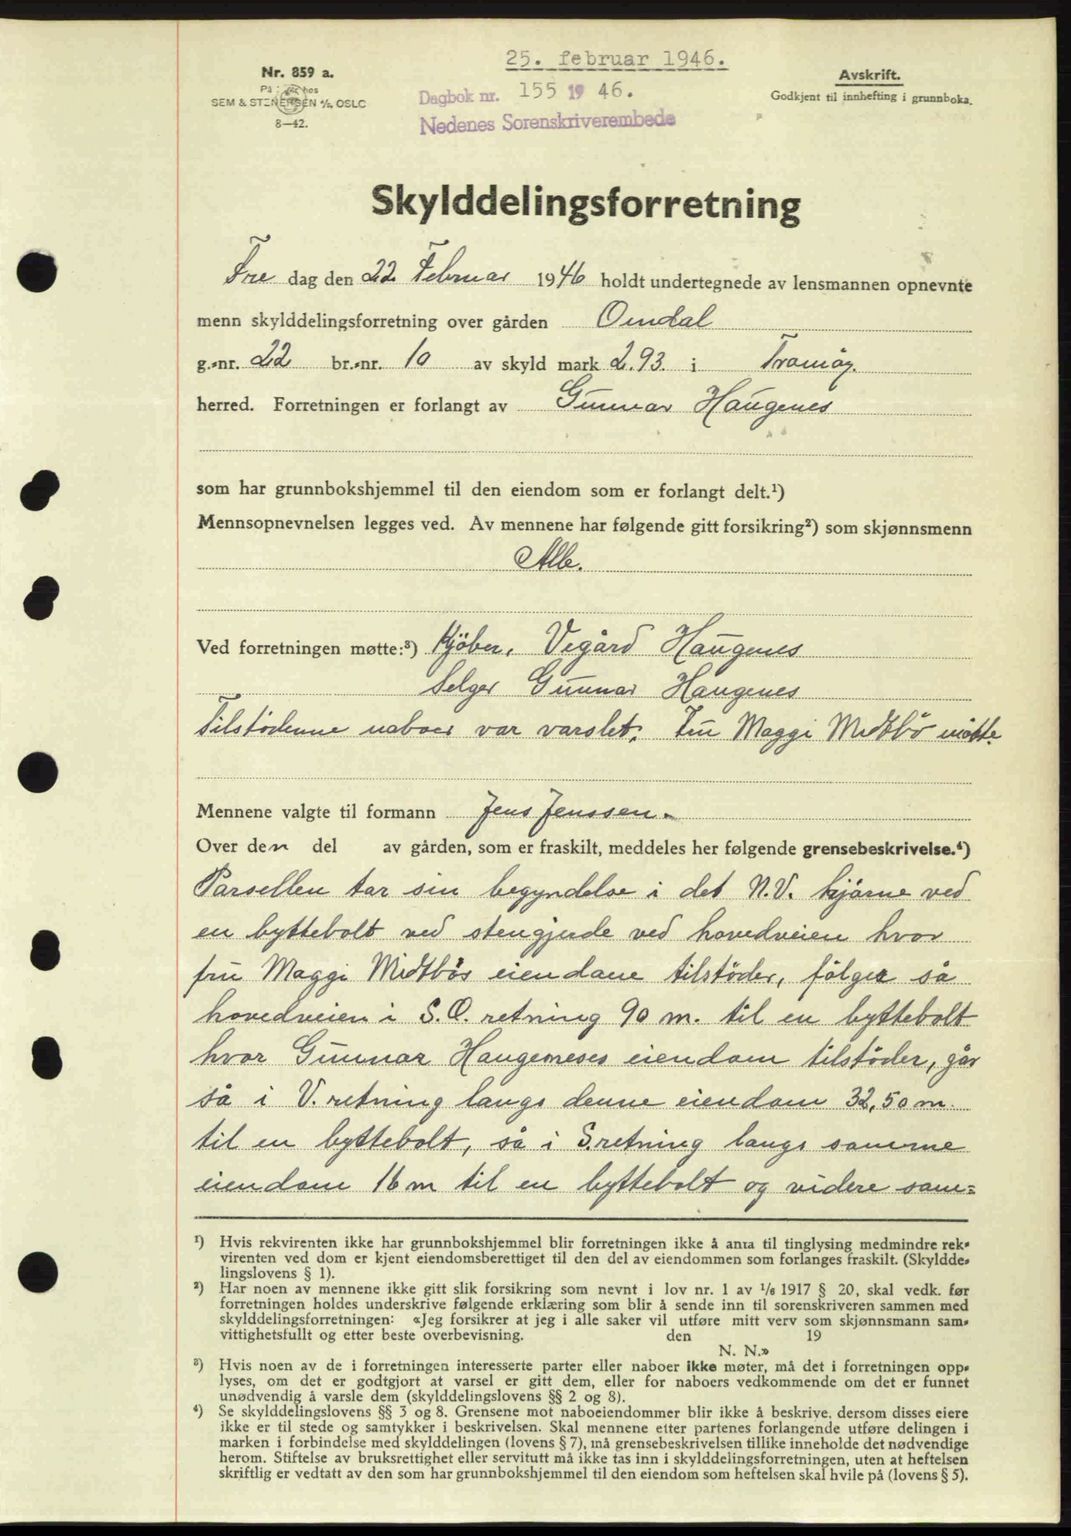 25. februar 1946.
Nr. 859 a.
Avskrift.
SEM & STENERSEN A/S, OSLO
Dagbok nr. 155 1946.
Godkjent til innhefting i grunnboka.
8—42.
Nedenes Sorenskriverembede
Skylddelingsforretning
Fre dag den 22 Februar 1946 holdt undertegnede av lensmannen opnevnte
menn skylddelingsforretning over gården Omdal
g.-nr. 22 br.-nr. 10 av skyld mark 2.93. i Tromöy.
herred. Forretningen er forlangt av Gunnar Haugenes
som har grunnbokshjemmel til den eiendom som er forlangt delt.¹)
Mennsopnevnelsen legges ved. Av mennene har følgende gitt forsikring²) som skjønnsmenn
Alle.
Ved forretningen møtte:³) Kjöber, Vegård Haugenes
Selger Gunnar Haugenes
Tilstödenne naboer var varslet. Fru Maggi Midtbö mötte.
Mennene valgte til formann Jens Jenssen.
Over den del av gården, som er fraskilt, meddeles her følgende grensebeskrivelse.⁴)
Parsellen tar sin begyndelse i det N.V. hjörne ved
en byttebolt ved stengjerde ved hovedveien hvor
fru Maggi Midtbös eiendane tilstöder, fölger så
hovedveien i S.O. retning 90 m. til en byttebolt
hvor Gunnar Haugeneses eiendom tilstöder, går
så i V. retning langs denne eiendom 32,50 m.
til en byttebolt, så i S. retning langs samme
eiendom 16 m til en byttebolt og videre sam=
¹) Hvis rekvirenten ikke har grunnbokshjemmel blir forretningen ikke å anta til tinglysing medmindre rek-
virenten ved dom er kjent eiendomsberettiget til den del av eiendommen som forlanges fraskilt. (Skyldde-
lingslovens § 1).
²) Har noen av mennene ikke gitt slik forsikring som nevnt i lov nr. 1 av 1/6 1917 § 20, skal vedk. før
forretningen holdes underskrive følgende erklæring som blir å sende inn til sorenskriveren sammen med
skylddelingsforretningen: «Jeg forsikrer at jeg i alle saker vil utføre mitt verv som skjønnsmann sam-
vittighetsfullt og etter beste overbevisning. den 19
N. N.»
³) Hvis noen av de i forretningen interesserte parter eller naboer ikke møter, må det i forretningen opp-
lyses, om det er godtgjort at varsel er gitt dem, eller for naboers vedkommende om det er funnet
unødvendig å varsle dem (skylddelingslovens §§ 2 og 8).
⁴) Se skylddelingslovens §§ 3 og 8. Grensene mot naboeiendommer blir ikke å beskrive, dersom disses eiere
ikke er til stede og samtykker i beskrivelsen. Skal mennene etter partenes forlangende utføre delingen i
marken i forbindelse med skylddelingen (lovens § 7), må grensebeskrivelsen tillike inneholde det nødvendige
herom. Stiftelse av bruksrettighet eller servitutt må ikke tas inn i skylddelingsforretningen, uten at heftelsen
skriftlig er vedtatt av den som har grunnbokshjemmel til den eiendom som heftelsen skal hvile på (lovens § 5).